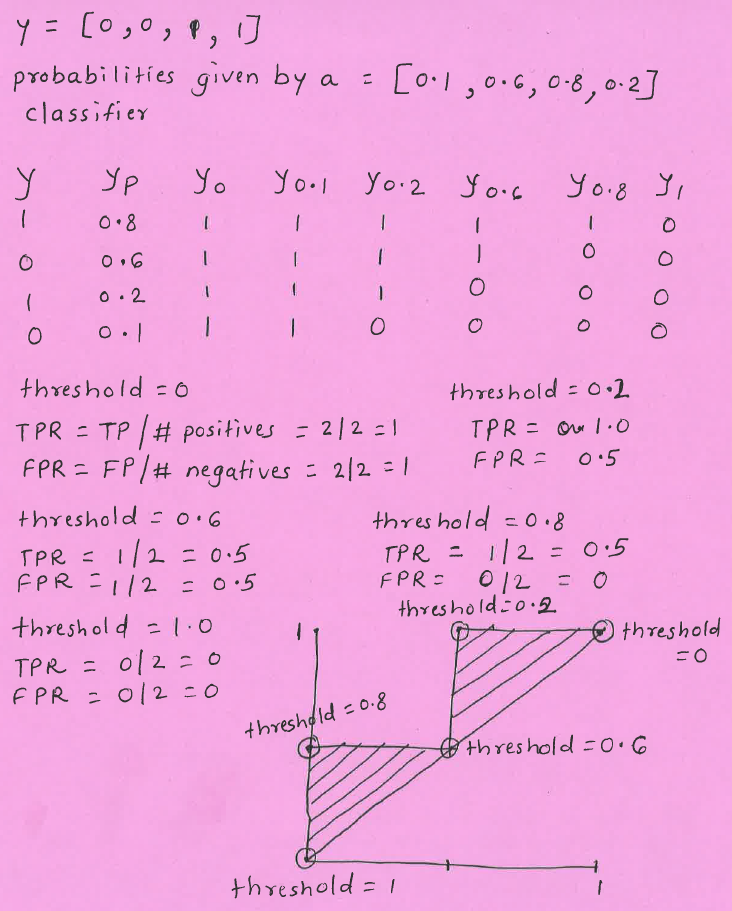 y = [0,0, 1, 1]
probabilities given by a = [0.1, 0.6, 0.8, 0.2]
classifier
y yp y0 y0.1 y0.2 y0.6 y0.8 y1
1 0.8 1 1 1 1 1 0
0 0.6 1 1 1 1 0 0
1 0.2 1 1 1 0 0 0
0 0.1 1 1 0 0 0 0
threshold = 0
TPR = TP/# positives = 2/2 = 1
FPR = FP/# negatives = 2/2 = 1
threshold = 0.2
TPR = 1.0
FPR = 0.5
threshold = 0.6
TPR = 1/2 = 0.5
FPR = 1/2 = 0.5
threshold = 0.8
TPR = 1/2 = 0.5
FPR = 0/2 = 0
threshold = 1.0
TPR = 0/2 = 0
FPR = 0/2 = 0
threshold=0.2
1
threshold
=0
threshold = 0.8
threshold = 0.6
threshold = 1
1